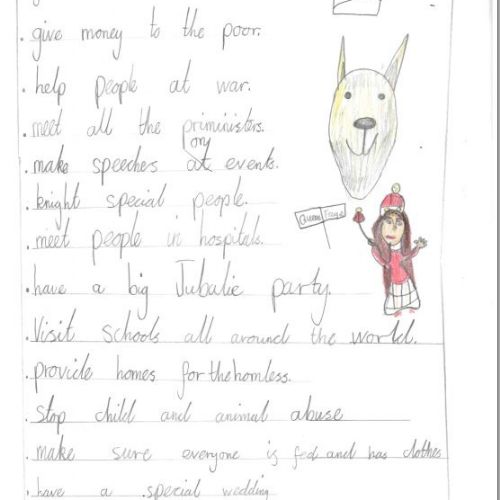 . give money to the poor.
. help people at war.
. meet all the priministers.
ony
. make speechers at events.
. knight special people.
. meet people in hospitals.
Queen
. have a big Jubalie party.
. Visit schools all around the world.
. provide homes for the homless.
. stop child and animal abuse
. make sure everyone is fed and has clothes
. have a special wedding